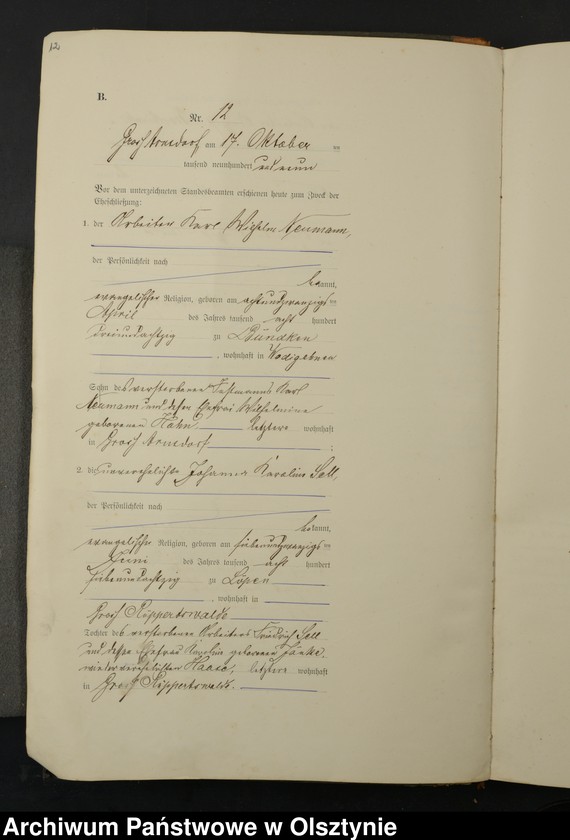 12
B.
Nr. 12
Groß Arnsdorf am 17. Oktober
tausend neunhundert und neun
Vor dem unterzeichneten Standesbeamten erschienen heute zum Zweck der
Eheschließung:
1. der Arbeiter Karl Wilhelm Neumann,
der Persönlichkeit nach
bekannt,
evangelischer Religion, geboren am achtundzwanzigsten
April des Jahres tausend acht hundert
dreiundachtzig zu Bündken
, wohnhaft in
Sohn des verstorbenen Karl
Neumann und dessen Ehefrau Wilhelmine
geborenen Hahn, letztere wohnhaft
in Groß Arnsdorf ;
2. die unverehelichte Johanna Karoline Sell,
der Persönlichkeit nach
bekannt,
evangelischer Religion, geboren am siebenundzwanzigsten
Juni des Jahres tausend acht hundert
siebenundachtzig zu Löpen
, wohnhaft in
Groß Rüppertswalde
Tochter des verstorbenen Arbeiters Friedrich Sell
und dessen Ehefrau Karoline geborenen
wiederverehelichten Haase, letztere wohnhaft
in Groß Rüppertswalde.
Archiwum Państwowe w Olsztynie